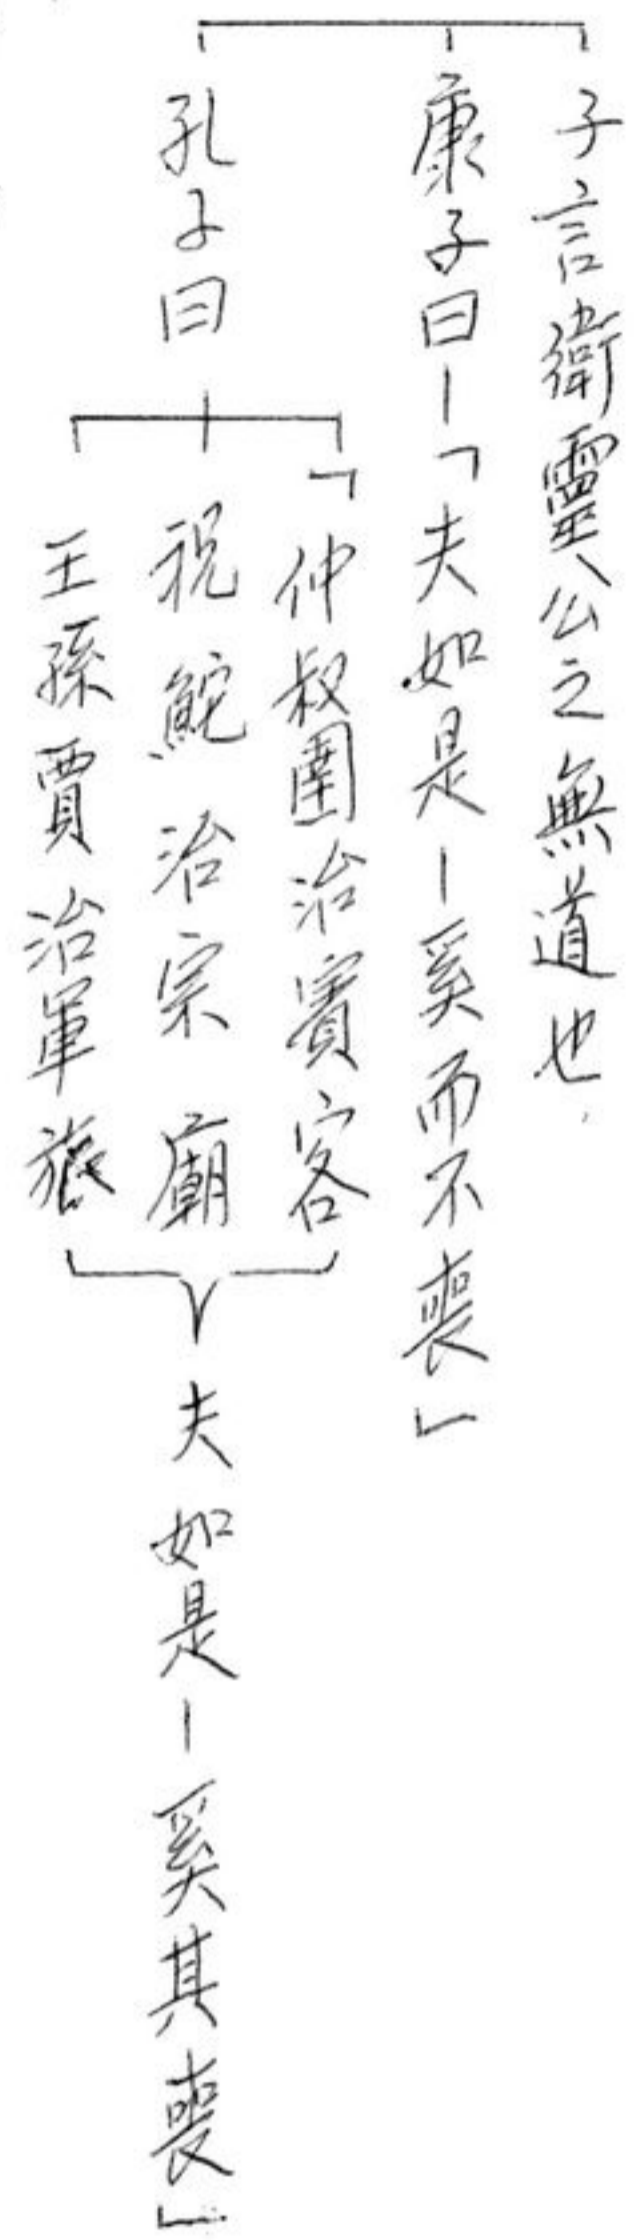 子言衛靈公之無道也
康子曰－「夫如是－奚而不喪」
孔子曰
「仲叔圉治賓客
祝鮀治宗廟
王孫賈治軍旅
夫如是－奚其喪」